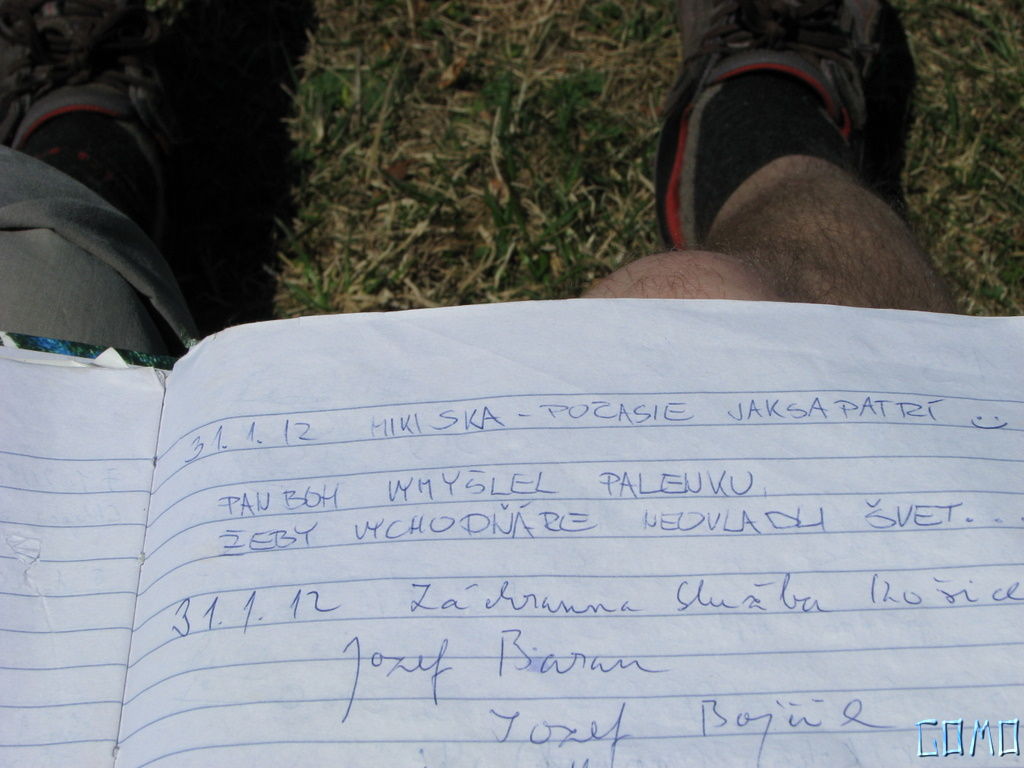 31.1.12 MIKI SKA - POČASIE JAKSAPATRÍ :)
PAN BOH VYMYSLEL PALENKU,
ŽEBY VYCHODŇÁRE NEOVLADLI ŠVET...
31.1.12 Záchranna služba Košice
Jozef Baran
Jozef
GOMO